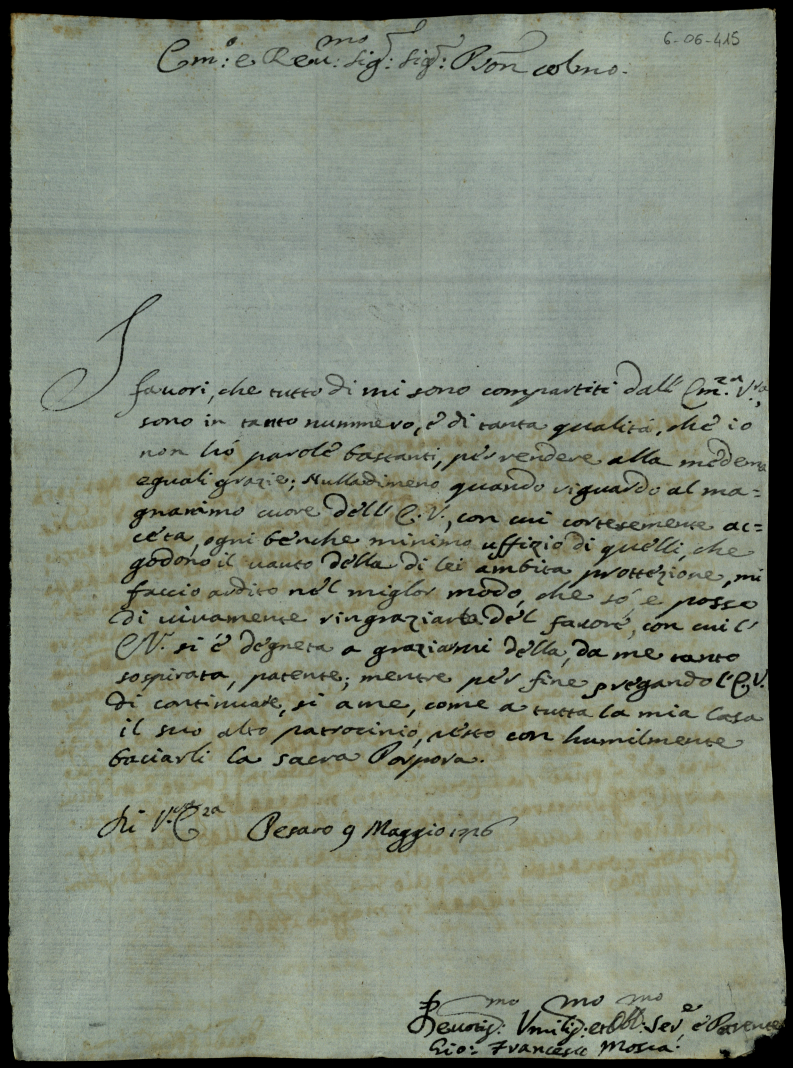 6-06-415
Em:º e Reu:mo Sig:r Sig:r Pron colmo.
I
fauori, che tutto di mi sono compartiti dall' Em:za V:ra,
sono in tanto nummero, e di tanta qualità, che io
non hò parole bastanti, per rendere alla medema
eguali grazie; Nulladimeno quando riguardo al ma=
gnanimo cuore dell' E. V., con cui cortesemente ac=
ceta, ogni benche minimo uffizio di quelli, che
godono il uanto della di lei ambita prottezione, mi
faccio ardito nel miglor modo, che sò, e posso
di uiuamente ringraziarla del fauore, con cui l'
E. V. si è degneta a graziarmi della, da me tanto
sospirata, patente; mentre per fine pregando l'E. V.
di continuare, si a me, come a tutta la mia Casa
il suo alto patrocinio, resto con humilmente
baciarli la sacra Porpora.
Di V:ra E:za Pesaro 9 Maggio 1726
Deuotis:mo Vmilis:mo et Obl:mo Ser:e e Parente
Gio: Francesco Mosca: